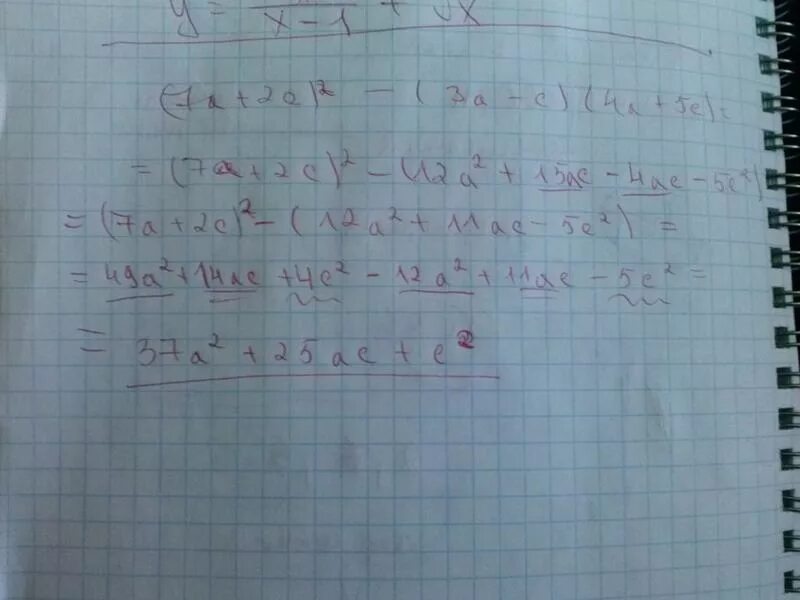 y = x - 1 + x
(7a + 2c)² - (3a - c)(4a + 5c) =
= (7a + 2c)² - (12a² + 15ac - 4ac - 5c²)
= (7a + 2c)² - (12a² + 11ac - 5c²) =
= 49a² + 14ac + 4c² - 12a² + 11ac - 5c² =
= 37a² + 25ac + c²